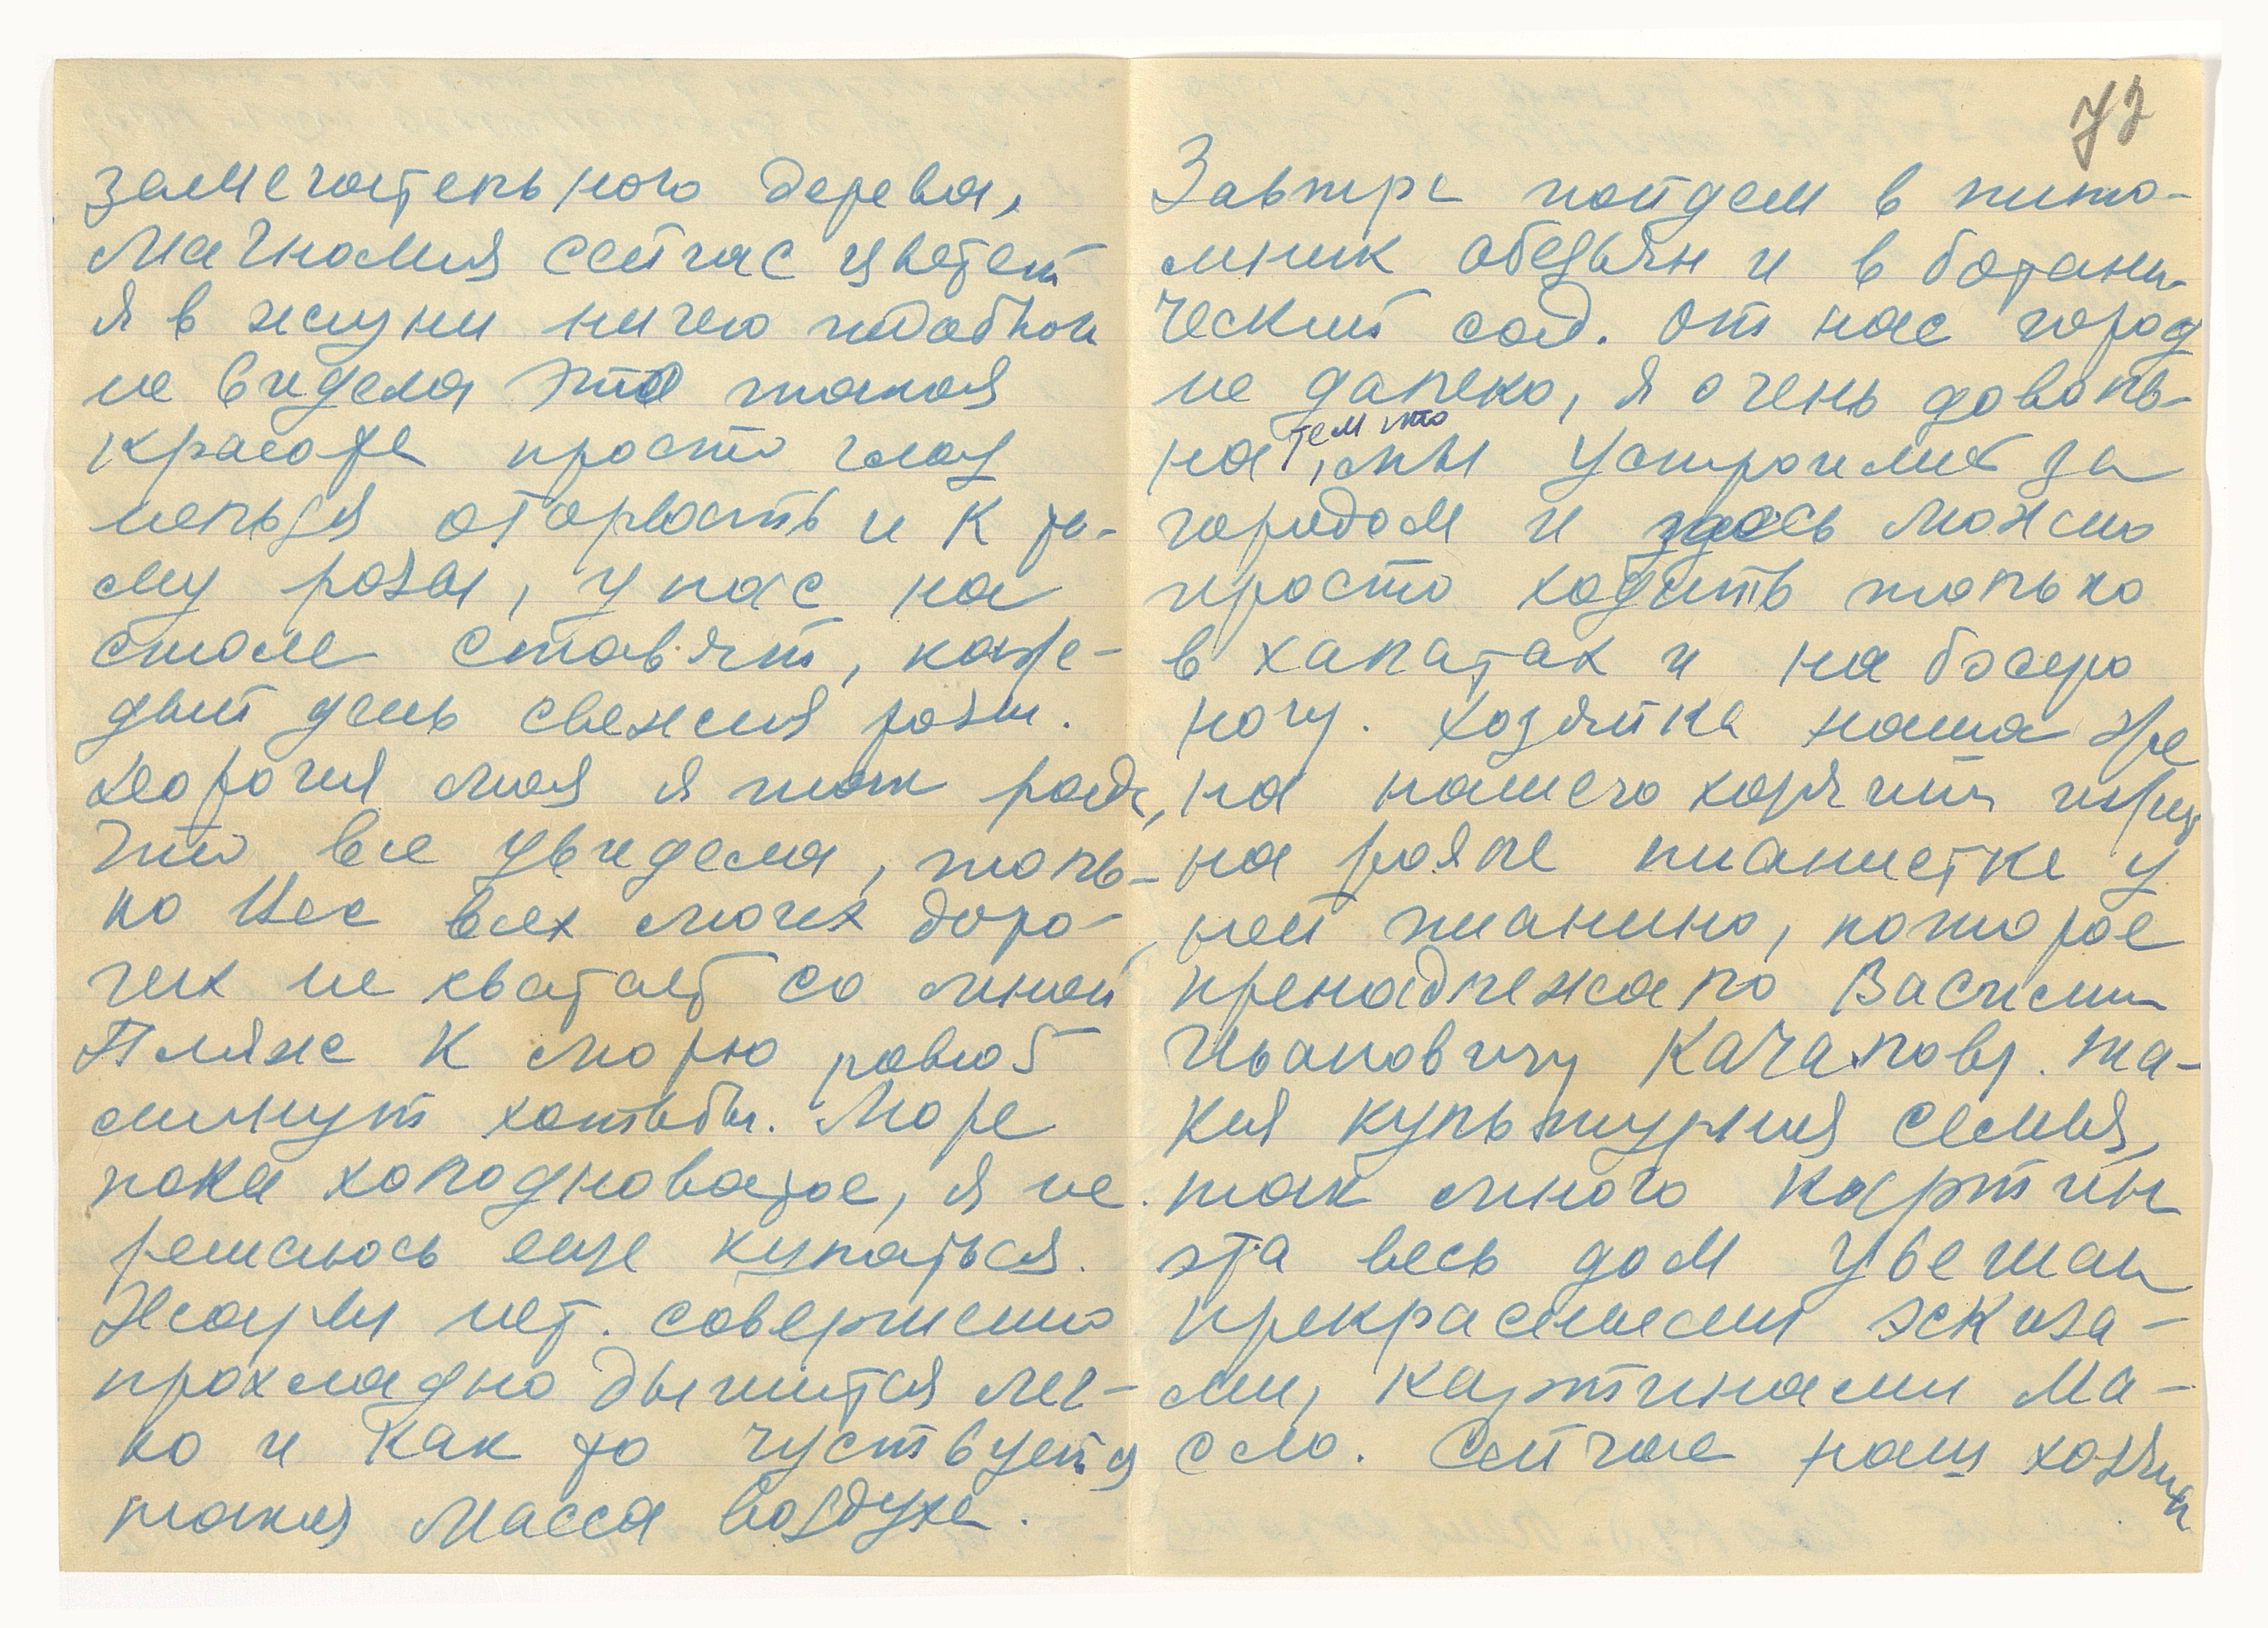 замечательного дерева,
магнолия сейчас цветет
я в жизни ничего подобного
не видела это такая
красота просто глаз
нельзя оторвать и к то-
му розы, у нас на
столе ставят, каж-
дый день свежия розы.
Дорогия мои я так рада,
что все увидела, толь-
ко Вас всех моих доро-
гих не хватает со мной
Пляж к морю ровно 5
минут хотьбы. Море
пока холодноватое, я не
решаюсь еще купаться.
Жары нет. совершенно
прохладно дышится лег-
ко и как то чуствуется
такая масса воздуха.
72
Завтра пойдем в пито-
мник обезьян и в ботани-
ческий сад. от нас город
не далеко, я очень доволь-
на тем что, мы устроились за
городом и здесь можно
просто ходить только
в халатах и на босую
ногу. Хозяйка наша же
на нашего
на рояле пианистка у
ней пианино, которое
пренадлежало Василию
Ивановичу Качалову. та-
кая культурная семья,
так много картин
эта весь дом увешан
прекрасными эскиза-
ми, картинами ма-
сло. Сейчас наш хозяин